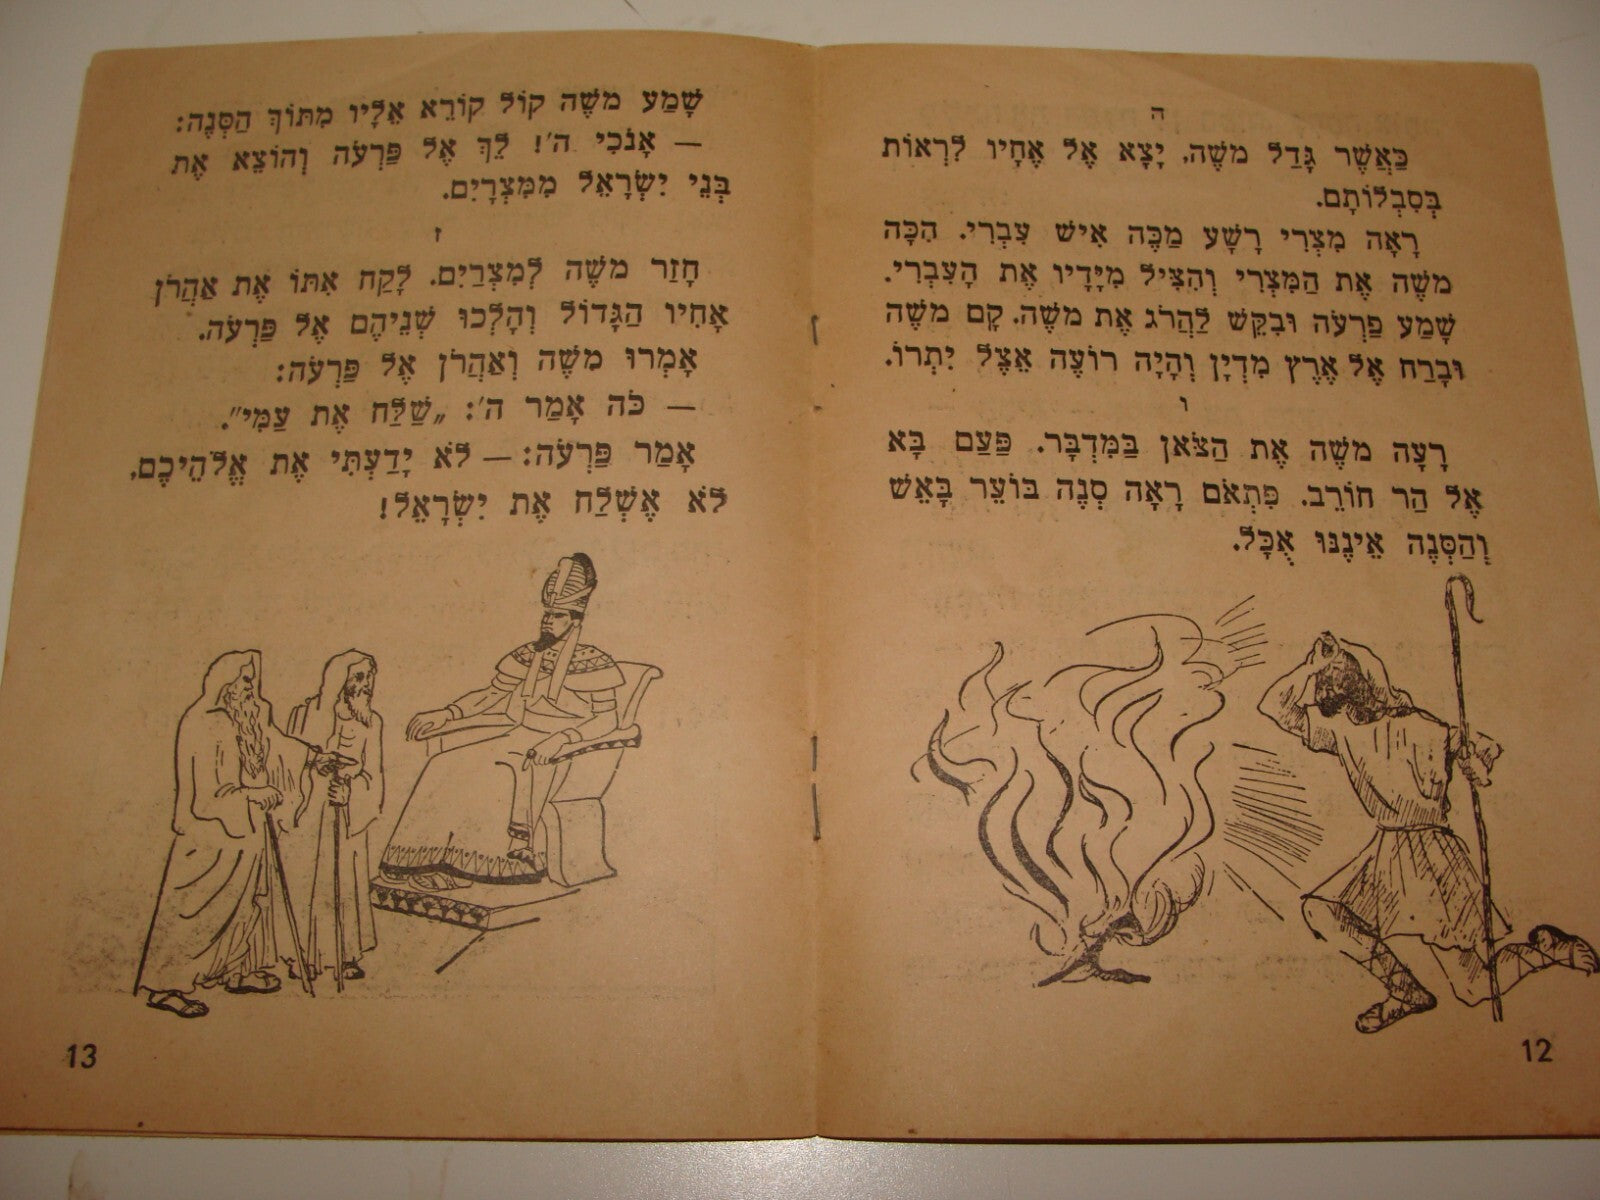 ה
כַּאֲשֶׁר גָּדַל מֹשֶׁה, יָצָא אֶל אֶחָיו לִרְאוֹת
בְּסִבְלוֹתָם.
רָאָה מִצְרִי רָשָׁע מַכֶּה אִישׁ עִבְרִי. הִכָּה
מֹשֶׁה אֶת הַמִּצְרִי וְהִצִּיל מִיָּדָיו אֶת הָעִבְרִי.
שָׁמַע פַּרְעֹה וּבִקֵּשׁ לַהֲרֹג אֶת מֹשֶׁה. קָם מֹשֶׁה
וּבָרַח אֶל אֶרֶץ מִדְיָן וְהָיָה רוֹעֶה אֵצֶל יִתְרוֹ.
ו
רָעָה מֹשֶׁה אֶת הַצֹּאן בַּמִּדְבָּר. פַּעַם בָּא
אֶל הַר חוֹרֵב. פִּתְאֹם רָאָה סְנֶה בּוֹעֵר בָּאֵשׁ
וְהַסְּנֶה אֵינֶנּוּ אֻכָּל.
12
שָׁמַע מֹשֶׁה קוֹל קוֹרֵא אֵלָיו מִתּוֹךְ הַסְּנֶה:
— אָנֹכִי ה'! לֵךְ אֶל פַּרְעֹה וְהוֹצֵא אֶת
בְּנֵי יִשְׂרָאֵל מִמִּצְרָיִם.
ז
חָזַר מֹשֶׁה לְמִצְרַיִם. לָקַח אִתּוֹ אֶת אַהֲרֹן
אָחִיו הַגָּדוֹל וְהָלְכוּ שְׁנֵיהֶם אֶל פַּרְעֹה.
אָמְרוּ מֹשֶׁה וְאַהֲרֹן אֶל פַּרְעֹה:
— כֹּה אָמַר ה': „שַׁלַּח אֶת עַמִּי”.
אָמַר פַּרְעֹה: — לֹא יָדַעְתִּי אֶת אֱלֹהֵיכֶם,
לֹא אֲשַׁלַּח אֶת יִשְׂרָאֵל!
13